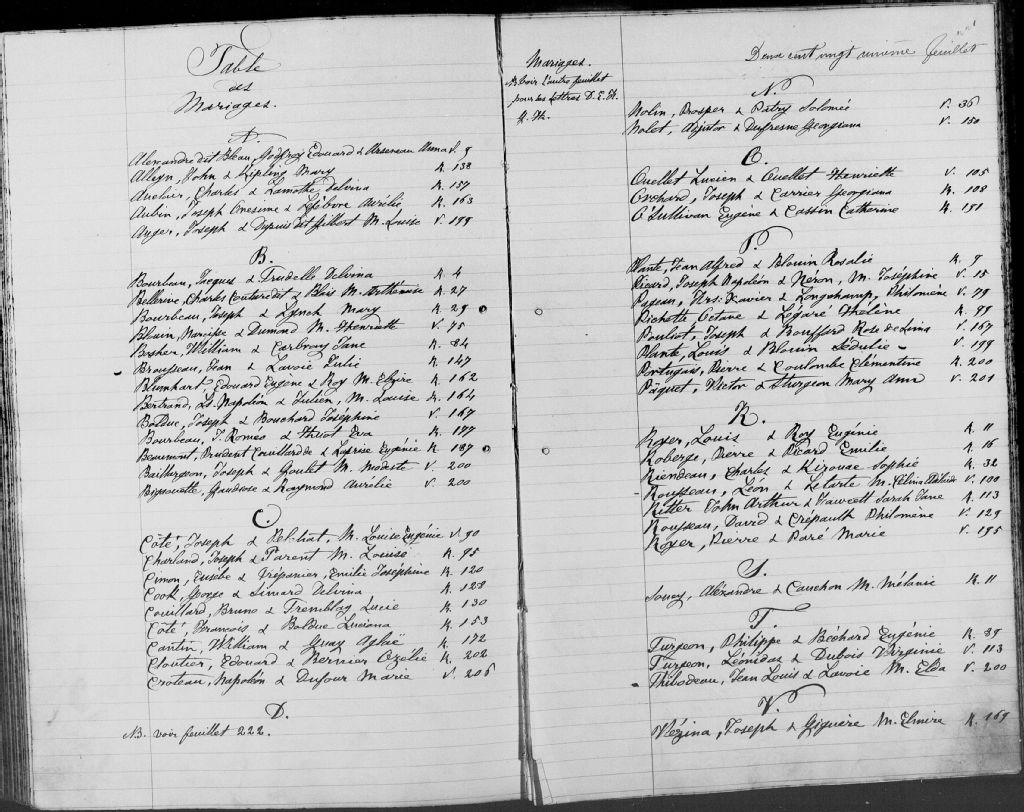 Table
des
Mariages.
A.
Alexandre dit Bleau, Godfroy Edouard & Arseneau Anna V. 9
Alleyn, John & Kipling Mary R. 138
Auclair, Charles & Lamothe Delvina R. 157
Aubin, Joseph Onesime & Lefebvre Aurélie R. 163
Auger, Joseph & Dupuis dit Gilbert M. Louise V. 199
B.
Bourbeau, Jacques & Trudelle Delvina R. 4
Bellerive, Charles Couture dit & Blais M. Arthémise R. 27
Bourbeau, Joseph & Lynch Mary R. 29
Blouin, Narcisse & Dumond M. Henriette V. 75
Bosher, William & Carbray Jane R. 84
Brousseau, Jean & Lavoie Julie R. 147
Blumhart, Edouard Eugène & Roy M. Elzire R. 162
Bertrand, Ls. Napoléon & Julien, M. Louise R. 164
Bolduc, Joseph & Bouchard Joséphine V. 167
Bourbeau, J. Romeo & Huot Eva R. 177
Beaumont, Prudent Couillard de & Laprise Eugénie R. 187
Baillargeon, Joseph & Goulet M. Modeste V. 200
Bigaouette, Gaudiose & Raymond Aurélie V. 200
C.
Côté, Joseph & Pelliat, M. Louise Eugénie V. 90
Charland, Joseph & Parent M. Louise R. 95
Cimon, Eusebe & Trépanier, Emilie Joséphine R. 120
Cook, George & Simard Delvina R. 128
Couillard, Bruno & Tremblay Lucie R. 130
Côté, François & Bolduc Luciana R. 153
Cantin, William & Guay Aglaë R. 172
Cloutier, Edouard & Bernier Ozélie R. 202
Croteau, Napoléon & Dufour Marie V. 206
D.
NB. voir feuillet 222.
Mariages.
NB. voir l'autre feuillet
pour les lettres D. E. F.
G. H.
Deux cent vingt unième feuillet
N.
Nolin, Prosper & Pitry Salomée V. 36
Nolet, Adjutor & Dufresne Georgiana V. 150
O.
Ouellet Lucien & Ouellet Henriette V. 105
Orchard, Joseph & Carrier Georgiana R. 108
O'Sullivan Eugène & Cassin Catherine R. 151
P.
Plante, Jean Alfred & Blouin Rosalie R. 9
Picard, Joseph Napoléon & Néron, M. Joséphine V. 15
Pageau, Frs. Xavier & Longchamp, Philomène V. 79
Pichette Octave & Légaré Hélène R. 99
Pouliot, Joseph & Bouffard Rose de Lima V. 167
Plante, Louis & Blouin Sédulie V. 199
Portugais, Pierre & Coulombe Clémentine R. 200
Paquet, Victor & Sturgeon Mary Ann V. 201
R.
Royer, Louis & Roy Eugénie R. 11
Roberge, Pierre & Picard Emilie R. 16
Riendeau, Charles & Kirouac Sophie R. 32
Rousseau, Léon & Letarte M. V. 100
Ritter John Arthur & Fawcett Sarah Jane R. 113
Rousseau, David & Crépault Philomène V. 129
Royer, Pierre & Paré Marie V. 195
S.
Soucy, Alexandre & Cauchon M. Mélanie R. 11
T.
Turgeon, Philippe & Béchard Eugénie R. 89
Turgeon, Léonidas & Dubois Virginie V. 113
Thibodeau, Jean Louis & Lavoie M. Elda V. 200
V.
Vézina, Joseph & Giguère M. Elmire R. 169